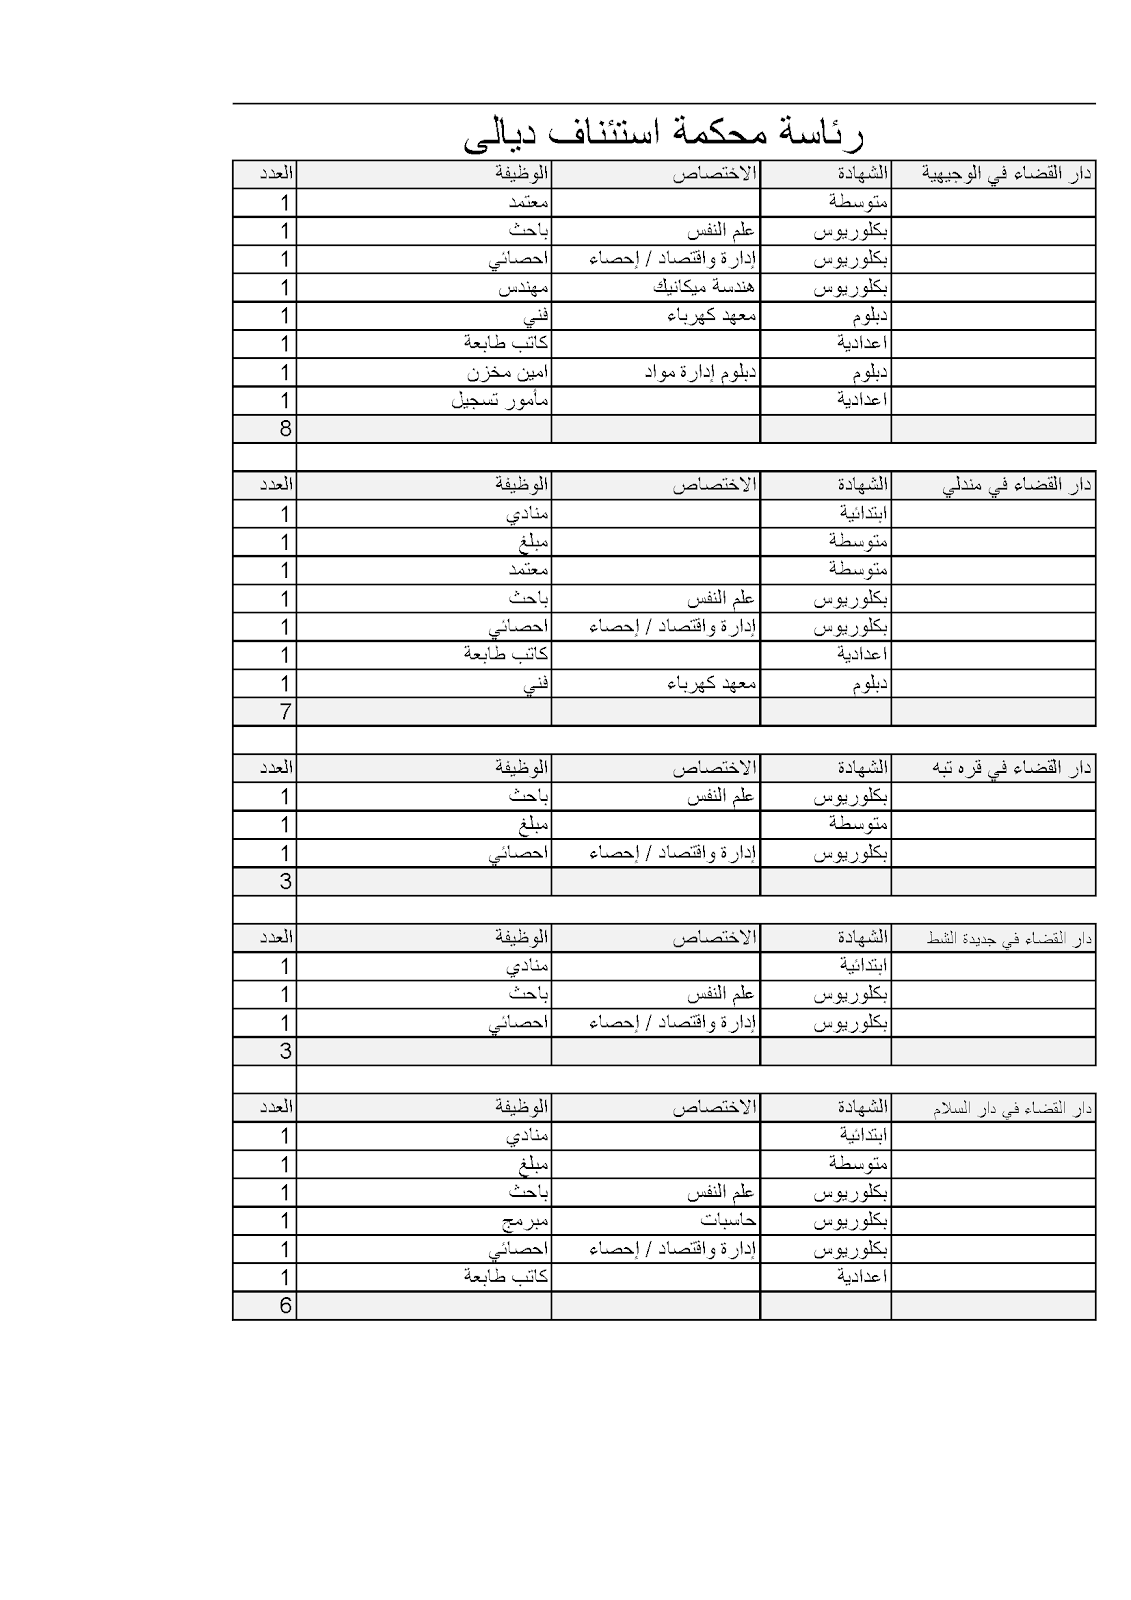 رئاسة محكمة استئناف ديالى
دار القضاء في الوجيهية الشهادة الاختصاص الوظيفة العدد
متوسطة معتمد 1
بكلوريوس علم النفس باحث 1
بكلوريوس إدارة واقتصاد / إحصاء احصائي 1
بكلوريوس هندسة ميكانيك مهندس 1
دبلوم معهد كهرباء فني 1
اعدادية كاتب طابعة 1
دبلوم دبلوم إدارة مواد امين مخزن 1
اعدادية مأمور تسجيل 1
8
دار القضاء في مندلي الشهادة الاختصاص الوظيفة العدد
ابتدائية منادي 1
متوسطة مبلغ 1
متوسطة معتمد 1
بكلوريوس علم النفس باحث 1
بكلوريوس إدارة واقتصاد / إحصاء احصائي 1
اعدادية كاتب طابعة 1
دبلوم معهد كهرباء فني 1
7
دار القضاء في قره تبه الشهادة الاختصاص الوظيفة العدد
بكلوريوس علم النفس باحث 1
متوسطة مبلغ 1
بكلوريوس إدارة واقتصاد / إحصاء احصائي 1
3
دار القضاء في جديدة الشط الشهادة الاختصاص الوظيفة العدد
ابتدائية منادي 1
بكلوريوس علم النفس باحث 1
بكلوريوس إدارة واقتصاد / إحصاء احصائي 1
3
دار القضاء في دار السلام الشهادة الاختصاص الوظيفة العدد
ابتدائية منادي 1
متوسطة مبلغ 1
بكلوريوس علم النفس باحث 1
بكلوريوس حاسبات مبرمج 1
بكلوريوس إدارة واقتصاد / إحصاء احصائي 1
اعدادية كاتب طابعة 1
6